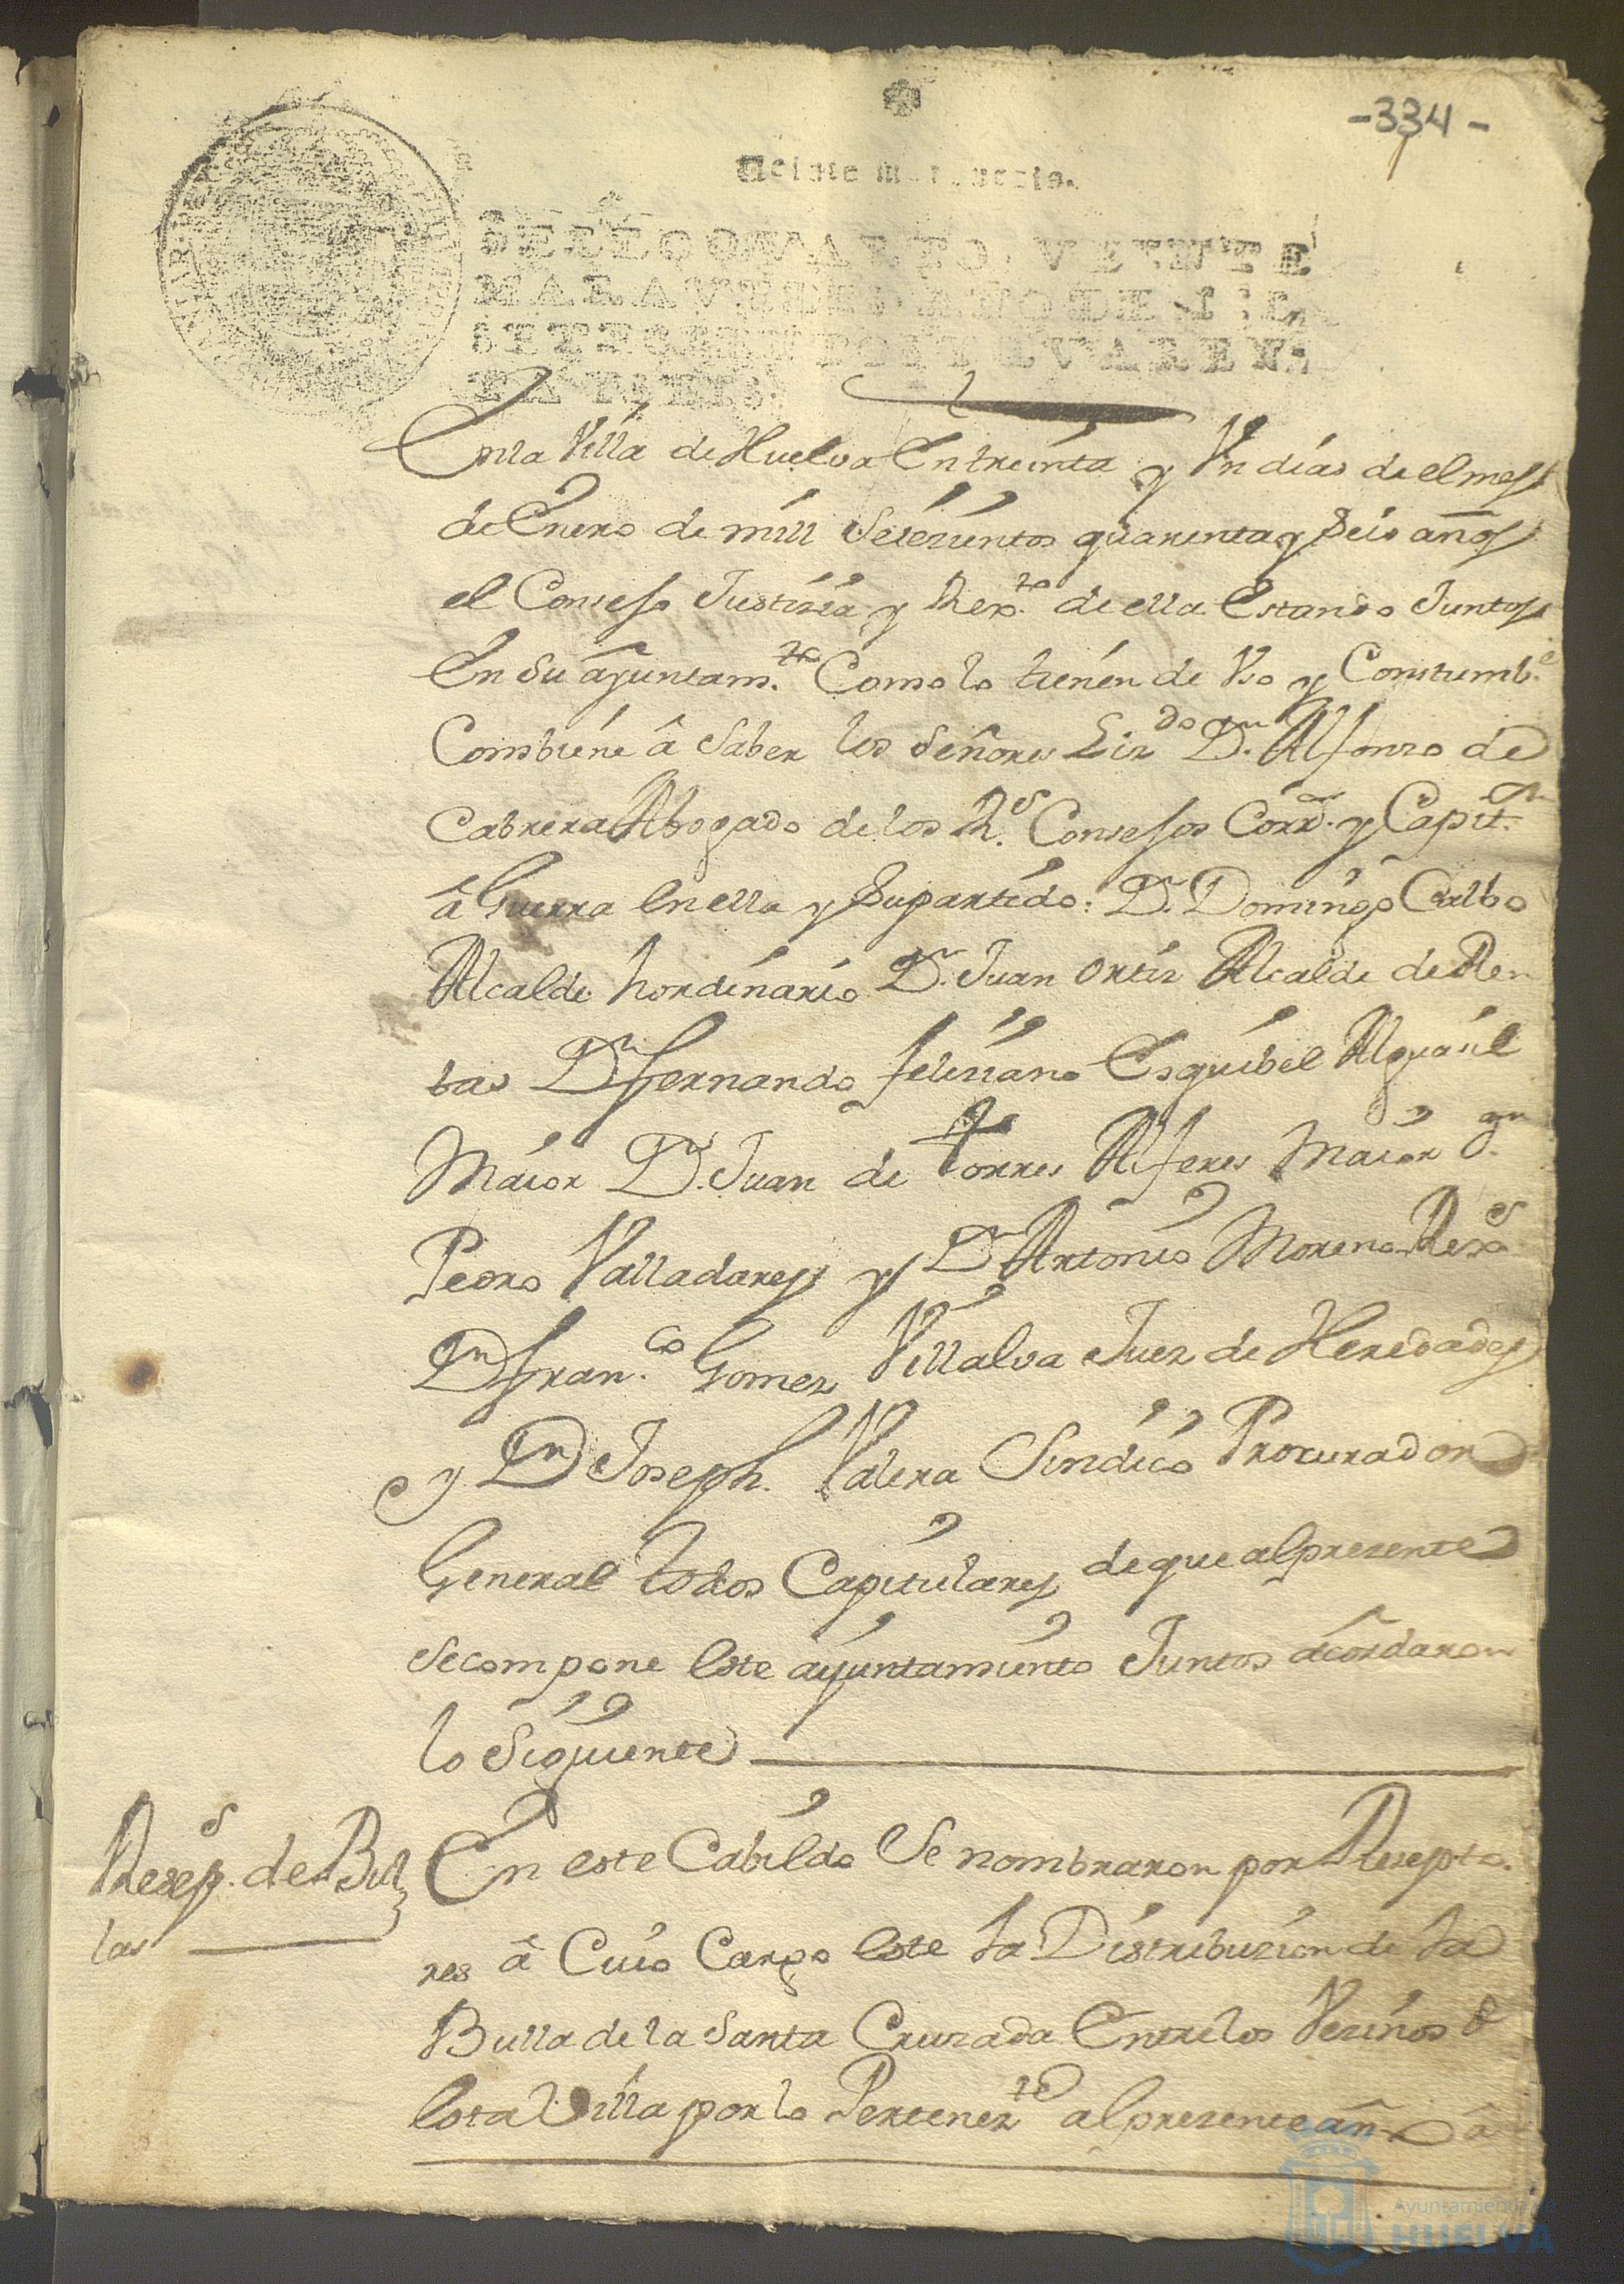 -334-
Veinte maravedis.
SELLO QVARTO, VEINTE
MARAVEDIS, AÑO DE MIL
SETECIENTOS Y QVAREN-
TA Y SEIS.
En la Villa de Huelva En treinta y Un dias de el mes
de Enero de mill Setezientos quarenta y Seis años
el Consejo Justizia y Rexto. de ella Estando Juntos
En Su ayuntamto. Como lo tienen de Uso y Constumbe.
Combiene â Saber los Señores Lizdo Dn. Alfonzo de
Cabrera Abogado de los Rs. Consejos Corror. y Capitn.
â Guerra en ella y Su partido: Dn. Domingo Calbo
Alcalde hordinario Dn. Juan Ortiz Alcalde de Ren
tas Dn fernando feliziano Esquibel Alguazil
Maior Dn. Juan de Torres Alferes Maior Dn.
Pedro Valladares y Dn Antonio Moreno Rexs
Dn Franco. Gomez Villalva Juez de Heredades
y Dn Joseph. Valera Sindico Procurador
General todos Capitulares de que al prezente
Se compone este ayuntamiento Juntos acordaron
lo Siguiente
Reseps. de Bul
las
En este Cabildo Se nombraron por Resepto.
res â Cuio Cargo este la Distribuzion de la
Bulla de la Santa Cruzada Entre los Vezinos de
esta Villa por lo Pertenezte al prezente año â
Ayuntamiento de
HUELVA